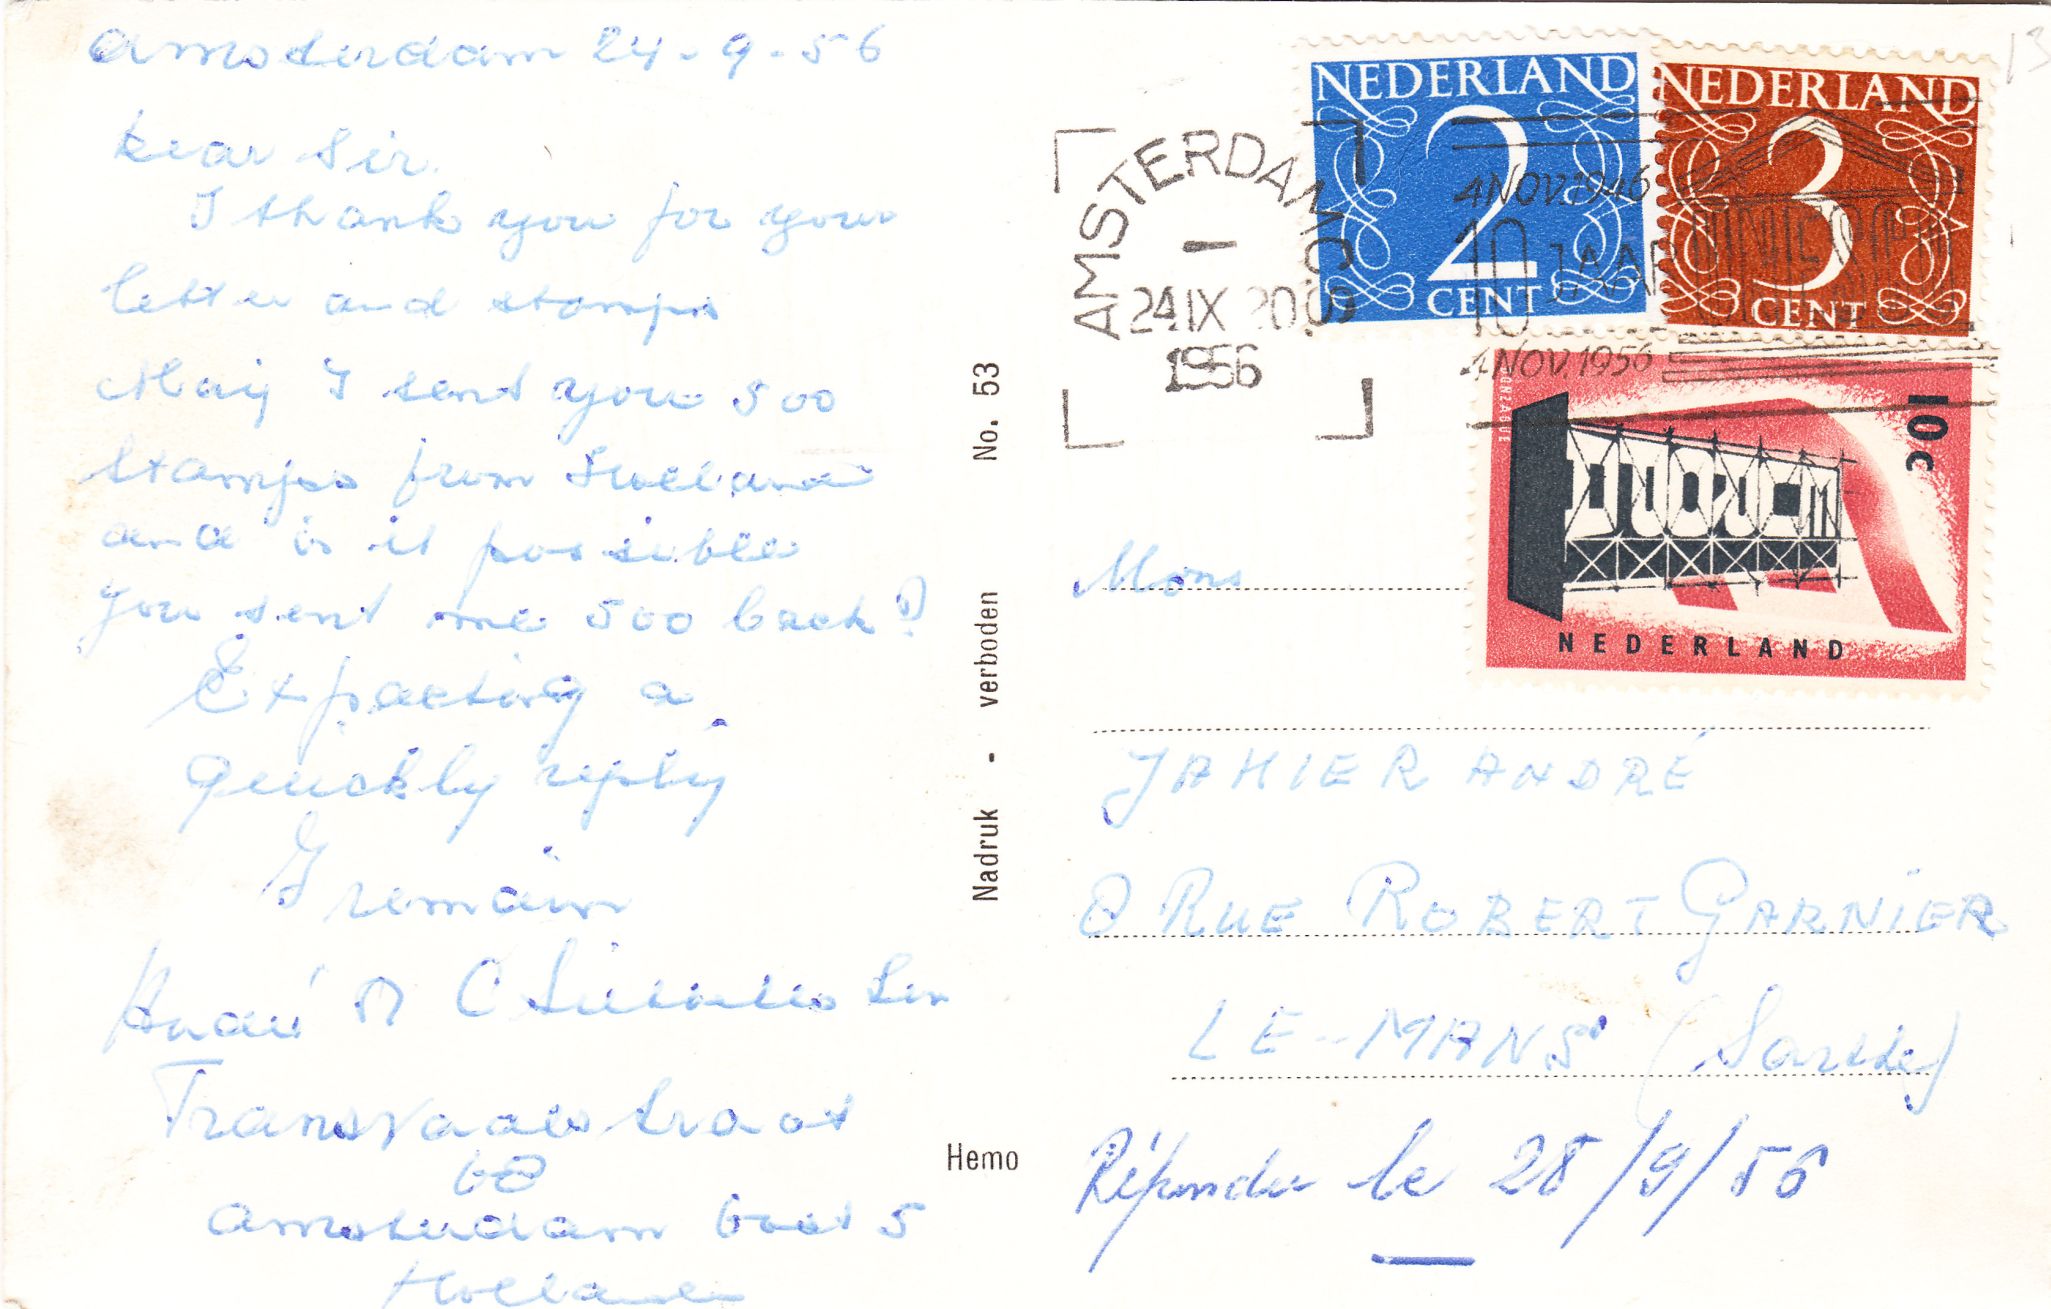 Amsterdam 24-9-56
Dear Sir.
I thank you for your
letter and stamps
May I sent you 500
stamps from Holland
and is it possible
you sent me 500 back?
Expecting a
quickly reply
I remain
C
Transvaalstraat
Amsterdam Oost 5
Holland
Nadruk - verboden No. 53
Hemo
AMSTERDAM C.S.
24 IX 20
1956
4 NOV. 1946
10 JAAR UNESCO
4 NOV. 1956
NEDERLAND
2
CENT
NEDERLAND
3
CENT
10c
EUROPA
NEDERLAND
Mons
JAHIER ANDRÉ
8 RUE ROBERT GARNIER
LE-MANS (Sarthe)
Répondu le 28/9/56
13